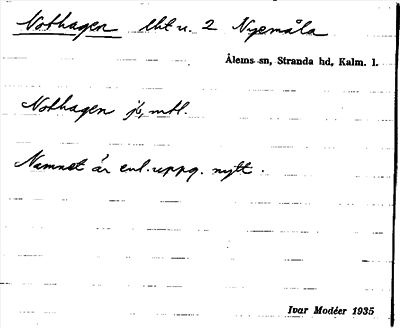 Nothagen lht u. 2 Nyemåla
Ålems sn, Stranda hd, Kalm. l.
Nothagen js, mtl.
Namnet är enl. uppg. nytt.
Ivar Modéer 1935